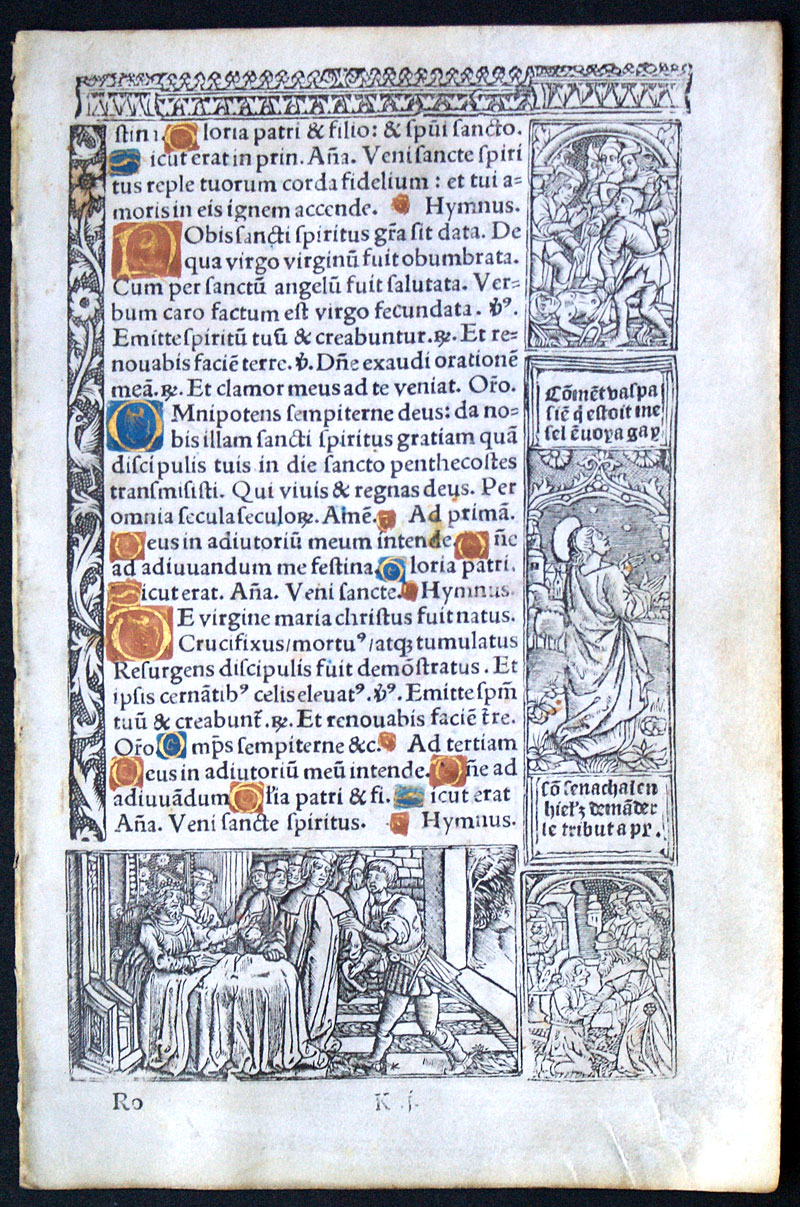 stin i. Gloria patri & filio: & spūi sancto.
Sicut erat in prin. Aña. Veni sancte spiri
tus reple tuorum corda fidelium : et tui a=
moris in eis ignem accende. Hymnus.
NObis sancti spiritus gr̃a sit data. De
qua virgo virginū fuit obumbrata.
Cum per sanctū angelū fuit salutata. Ver=
bum caro factum est virgo fecundata. v̾ꝰ.
Emitte spiritū tuū & creabuntur. ℞. Et re=
nouabis faciē terre. v̾. Dñe exaudi orationē
meā. ℞. Et clamor meus ad te veniat. Or̃o.
OMnipotens sempiterne deus: da no=
bis illam sancti spiritus gratiam quā
discipulis tuis in die sancto penthecostes
transmisisti. Qui viuis & regnas deus. Per
omnia secula seculoꝝ. Amē. Ad primā.
Deus in adiutoriū meum intende. Dñe
ad adiuuandum me festina. Gloria patri.
Sicut erat. Aña. Veni sancte. Hymnus.
DE virgine maria christus fuit natus.
Crucifixus/mortuꝰ/atqꝫ tumulatus
Resurgens discipulis fuit demōstratus. Et
ipsis cernātibꝰ celis eleuatꝰ. v̾ꝰ. Emitte spm̃
tuū & creabunt̃. ℞. Et renouabis faciē t̃re.
Or̃o Omp̃s sempiterne &c. Ad tertiam
Deus in adiutoriū meū intende. Dñe ad
adiuuādum Gl̃ia patri & fi. Sicut erat
Aña. Veni sancte spiritus. Hymnus.
Cōmēt vaspa
siē q̄ estoit me
sel ēuoya gay
sō senachal en
hierłꝫ demāder
le tribut a py.
Ro
K .j.